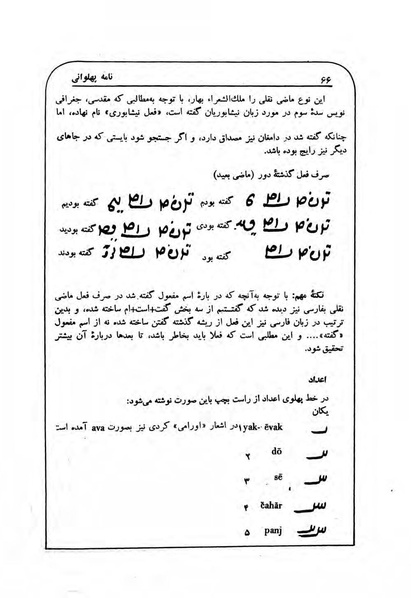 ۶۶ نامه پهلوانی
این نوع ماضی نقلی را ملك‌الشعراء بهار، با توجه به‌مطالبی که مقدسی، جغرافی
نویس سدهٔ سوم در مورد زبان نیشابوریان گفته است، «فعل نیشابوری» نام نهاده، اما
چنانکه گفته شد در دامغان نیز مصداق دارد، و اگر جستجو شود بایستی که در جاهای
دیگر نیز رایج بوده باشد.
صرف فعل گذشتهٔ دور (ماضی بعید)
گفته بودم گفته بودیم
گفته بودی گفته بودید
گفته بود گفته بودند
نکتهٔ مهم: با توجه به‌آنچه که در بارهٔ اسم مفعول گفته شد در صرف فعل ماضی
نقلی بفارسی نیز دیده شد که گفتستیم از سه بخش گفت+است+ام ساخته شده، و بدین
ترتیب در زبان فارسی نیز این فعل از ریشه گذشته گفتن ساخته شده نه از اسم مفعول
«گفته».... و این مطلبی است که فعلا باید بخاطر باشد، تا بعدها دربارهٔ آن بیشتر
تحقیق شود.
اعداد
در خط پهلوی اعداد از راست بچپ باین صورت نوشته می‌شود:
یکان
yak- ēvak ۱ در اشعار «اورامی» کردی نیز بصورت ava آمده است
dō ۲
sē ۳
čahār ۴
panj ۵